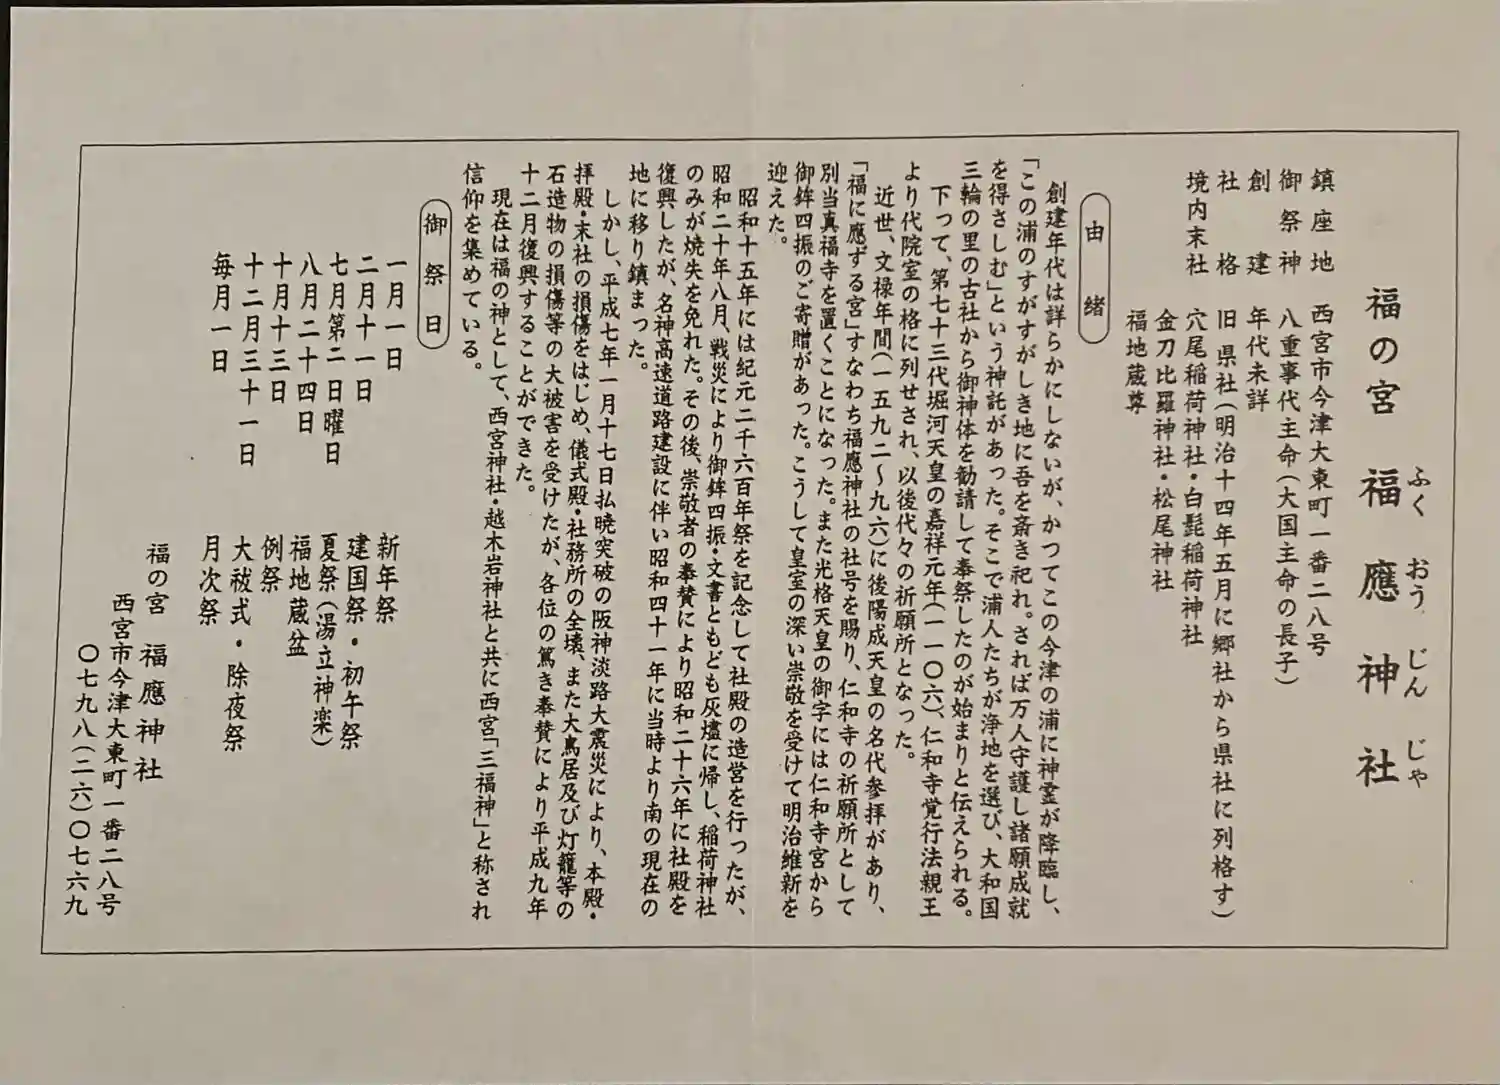 福の宮 福應神社
ふくおうじんじゃ
鎮座地 西宮市今津大東町一番二八号
御祭神 八重事代主命(大国主命の長子)
創建 年代未詳
社格 旧県社(明治十四年五月に郷社から県社に列格す)
境内末社 穴尾稲荷神社・白髭稲荷神社
金刀比羅神社・松尾神社
福地蔵尊
由緒
創建年代は詳らかにしないが、かつてこの今津の浦に神霊が降臨し、
「この浦のすがすがしき地に吾を斎き祀れ。されば万人守護し諸願成就
を得さしむ」という神託があった。そこで浦人たちが浄地を選び、大和国
三輪の里の古社から御神体を勧請して奉祭したのが始まりと伝えられる。
下って、第七十三代堀河天皇の嘉祥元年(一一〇六)、仁和寺覚行法親王
より代院室の格に列せされ、以後代々の祈願所となった。
近世、文禄年間(一五九二〜九六)に後陽成天皇の名代参拝があり、
「福に應ずる宮」すなわち福應神社の社号を賜り、仁和寺の祈願所として
別当真福寺を置くことになった。また光格天皇の御字には仁和寺宮から
御鉾四振のご寄贈があった。こうして皇室の深い崇敬を受けて明治維新を
迎えた。
昭和十五年には紀元二千六百年祭を記念して社殿の造営を行ったが、
昭和二十年八月、戦災により御鉾四振・文書ともども灰燼に帰し、稲荷神社
のみが焼失を免れた。その後、崇敬者の奉賛により昭和二十六年に社殿を
復興したが、名神高速道路建設に伴い昭和四十一年に当時より南の現在の
地に移り鎮まった。
しかし、平成七年一月十七日払暁突破の阪神淡路大震災により、本殿・
拝殿・末社の損傷をはじめ、儀式殿・社務所の全壊、また大鳥居及び灯籠等の
石造物の損傷等の大被害を受けたが、各位の篤き奉賛により平成九年
十二月復興することができた。
現在は福の神として、西宮神社・越木岩神社と共に西宮「三福神」と称され
信仰を集めている。
御祭日
一月一日 新年祭
二月十一日 建国祭・初午祭
七月第二日曜日 夏祭(湯立神楽)
八月二十四日 福地蔵盆
十月十三日 例祭
十二月三十一日 大祓式・除夜祭
毎月一日 月次祭
福の宮 福應神社
西宮市今津大東町一番二八号
〇七九八(二六)〇七六九